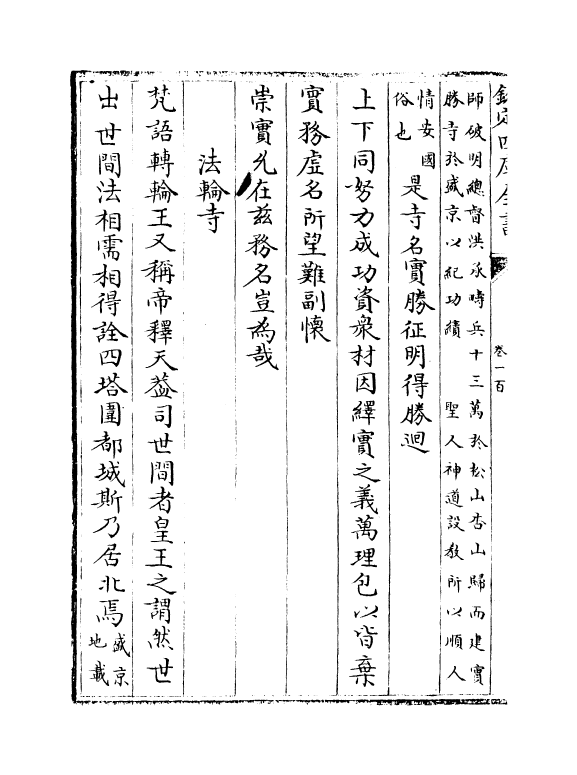 欽定四庫全書
卷一百
師破明總督洪承疇兵十三萬於松山杏山歸而建實
勝寺於盛京以紀功績　聖人神道設教所以順人
情安國
俗也
是寺名實勝征明得勝迴
上下同努力成功資衆材因繹實之義萬理包以皆棄
實務虛名所望難副懷
崇實允在兹務名豈為哉
法輪寺
梵語轉輪王又稱帝釋天葢司世間者皇王之謂然世
出世間法相需相得詮四塔圍都城斯乃居北焉
盛京
地載